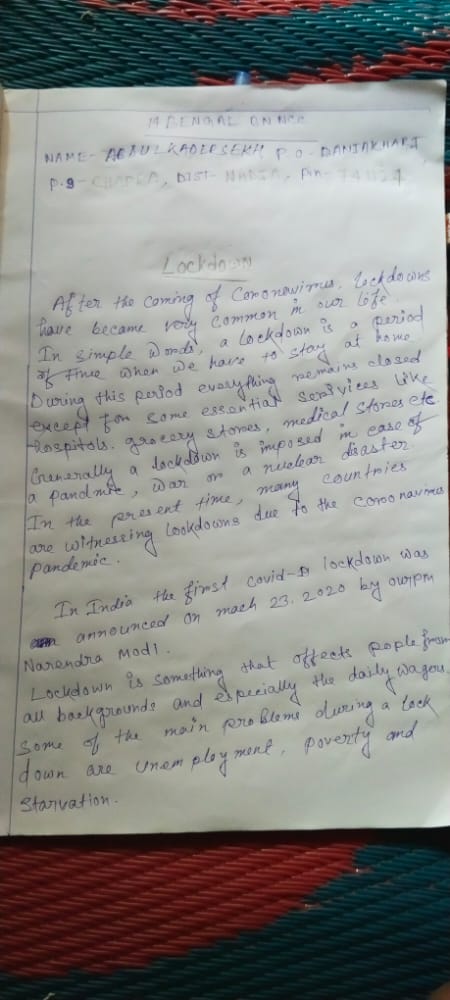 BENGAL BN NCC
NAME- ABDULKADERSEKH P.O- DANIAKHARI
P.S- CHAPRA, DIST- NADIA, Pin-
Lockdown
After the coming of Coronavirus, lockdowns
have became very common in our life.
In simple words, a lockdown is a period
of time when we have to stay at home.
During this period everything remains closed
except for some essential serivices like
hospitols. grocery stores, medical stores etc.
Generally a lockdown is imposed in case of
a pandmic, war or a nuclear disaster.
In the present time, many countries
are witnessing lookdowns due to the coronavirus
pandemic.
In India the first covid-19 lockdown was
announced on mach 23, 2020 by our pm
Narendra Modi.
Lockdown is something that affects pople from
all backgrounds and especially the daily wagers
some of the main problems during a lock
down are unemployment, poverty and
starvation.